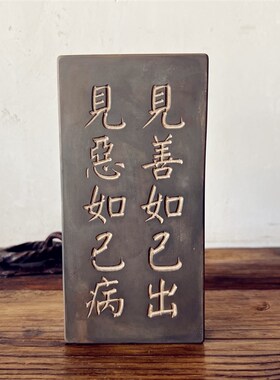 見善如己出
見惡如己病